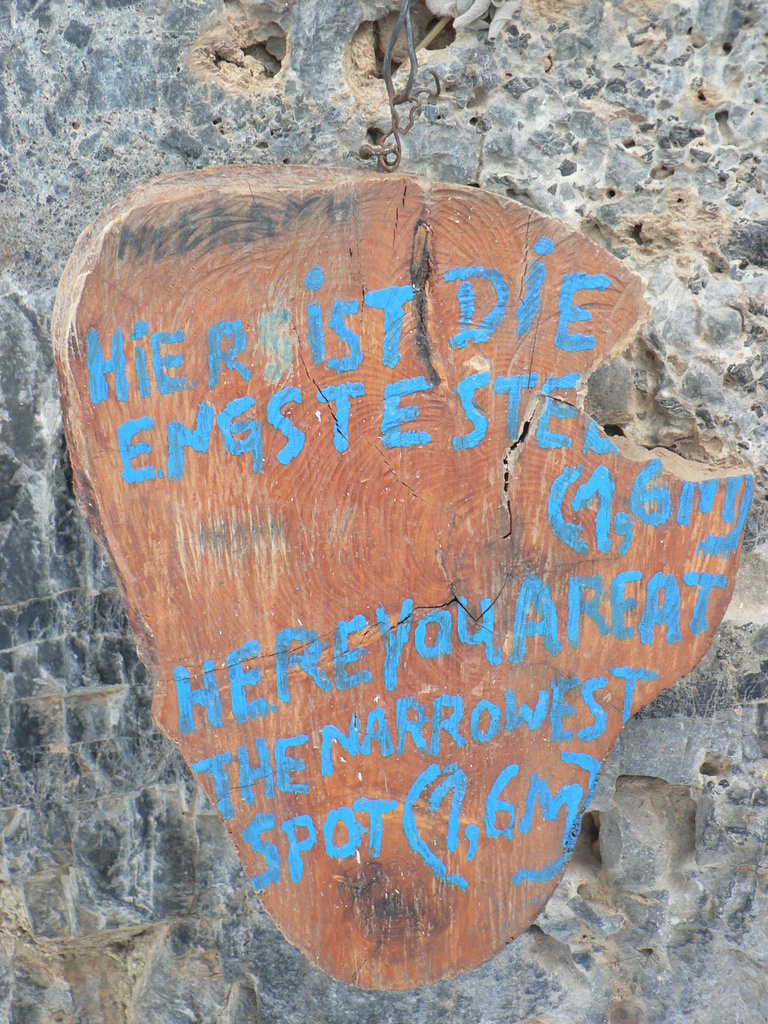 HiER iST DiE
ENGSTE STEL
(1,6M)
HERE YOU ARE AT
THE NARROWEST
SPOT (1,6M)